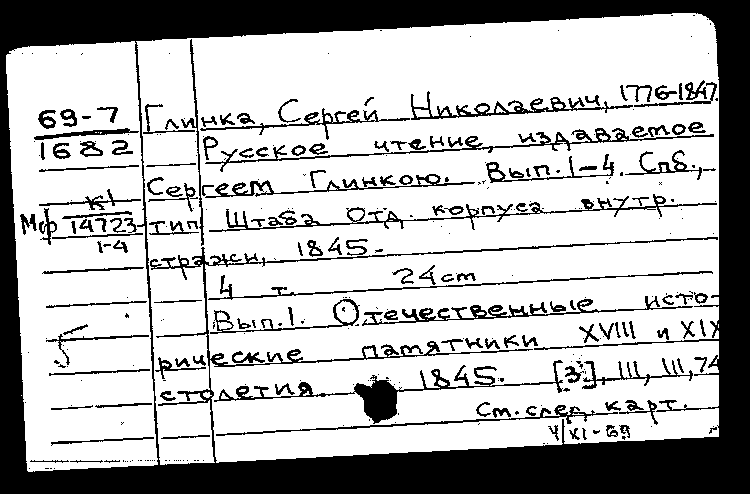 69-7 Глинка, Сергей Николаевич, 1776-1847.
1682 Русское чтение, издаваемое
Сергеем Глинкою. Вып. 1-4. Спб.,
К1
Мф 14723 тип. Штаба Отд. корпуса внутр.
1-4
стражи, 1845.-
4 т. 24 cm
Вып. 1. Отечественные исто-
рические памятники XVIII и XIX
столетия. 1845. [3], III, III, 74
См. след. карт.
XI-69